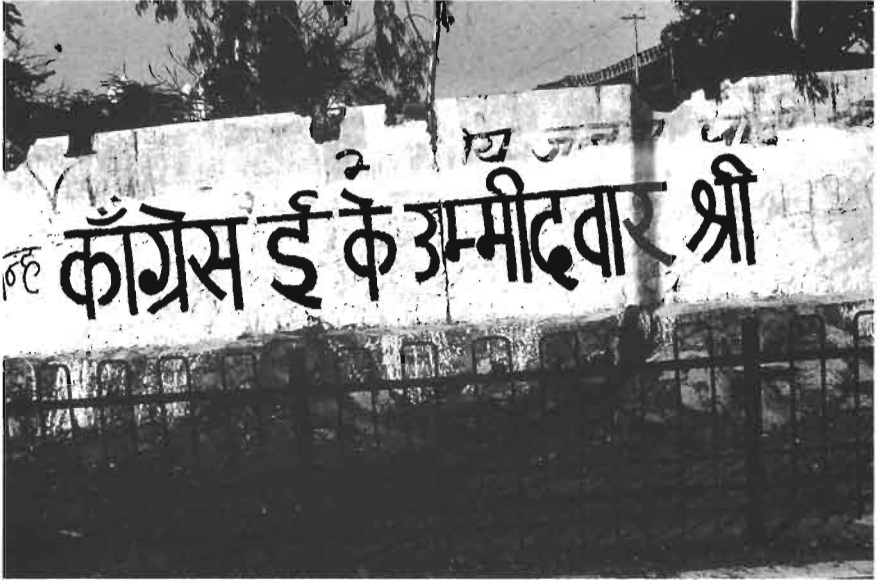 काँग्रेस ई के उम्मीदवार श्री